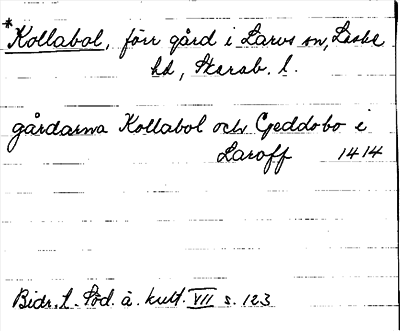 *Kollabol, förr gård i Larvs sn, Laske
hd, Skarab. l.
gårdarna Kollabol och Geddobo i
Laroff 1414
Bidr. t. Söd. å. kult. VII s. 123